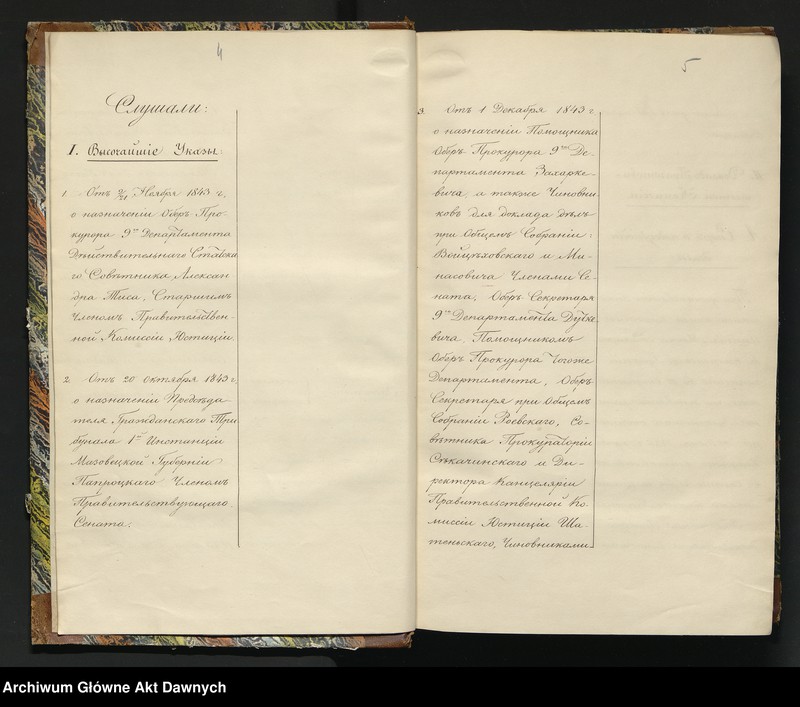 4
Слушали:
I. Высочайшіе Указы.
1. Отъ 9/21 Ноября 1843 г.
о назначеніи Оберъ Про-
курора 9го Департамента
Дѣйствительнаго Статска
го Совѣтника, Алексан
дра Тиса, Старшимъ
Членомъ Правительствен-
ной Коммисіи Юстиціи.
2. Отъ 20 октября 1843 г.
о назначеніи Предсѣда
теля Гражданскаго Три
бунала 1й Инстанціи
Мазовецкой Губерніи
Папроцкаго Членомъ
Правительствующаго
Сената.
5
3. Отъ 1 Декабря 1843 г.
о назначеніи Помощника
Оберъ Прокурора 9го Де-
партамента Захарке-
вича, а также Чиновни-
ковъ для доклада дѣлъ
при Общемъ Собраніи:
Войцѣховскаго и Ми-
насовича Членами Се-
ната, Оберъ Секретаря
9го Департамента Дутке-
вича, Помощникомъ
Оберъ Прокурора тогоже
Департамента, Оберъ
Секретаря при Общемъ
Собраніи Роевскаго, Со-
вѣтника Прокураторіи
Сѣкачинскаго и Ди-
ректора Канцеляріи
Правительственной Ко
миссіи Юстиціи Ша-
теньскаго, Чиновниками
Archiwum Główne Akt Dawnych